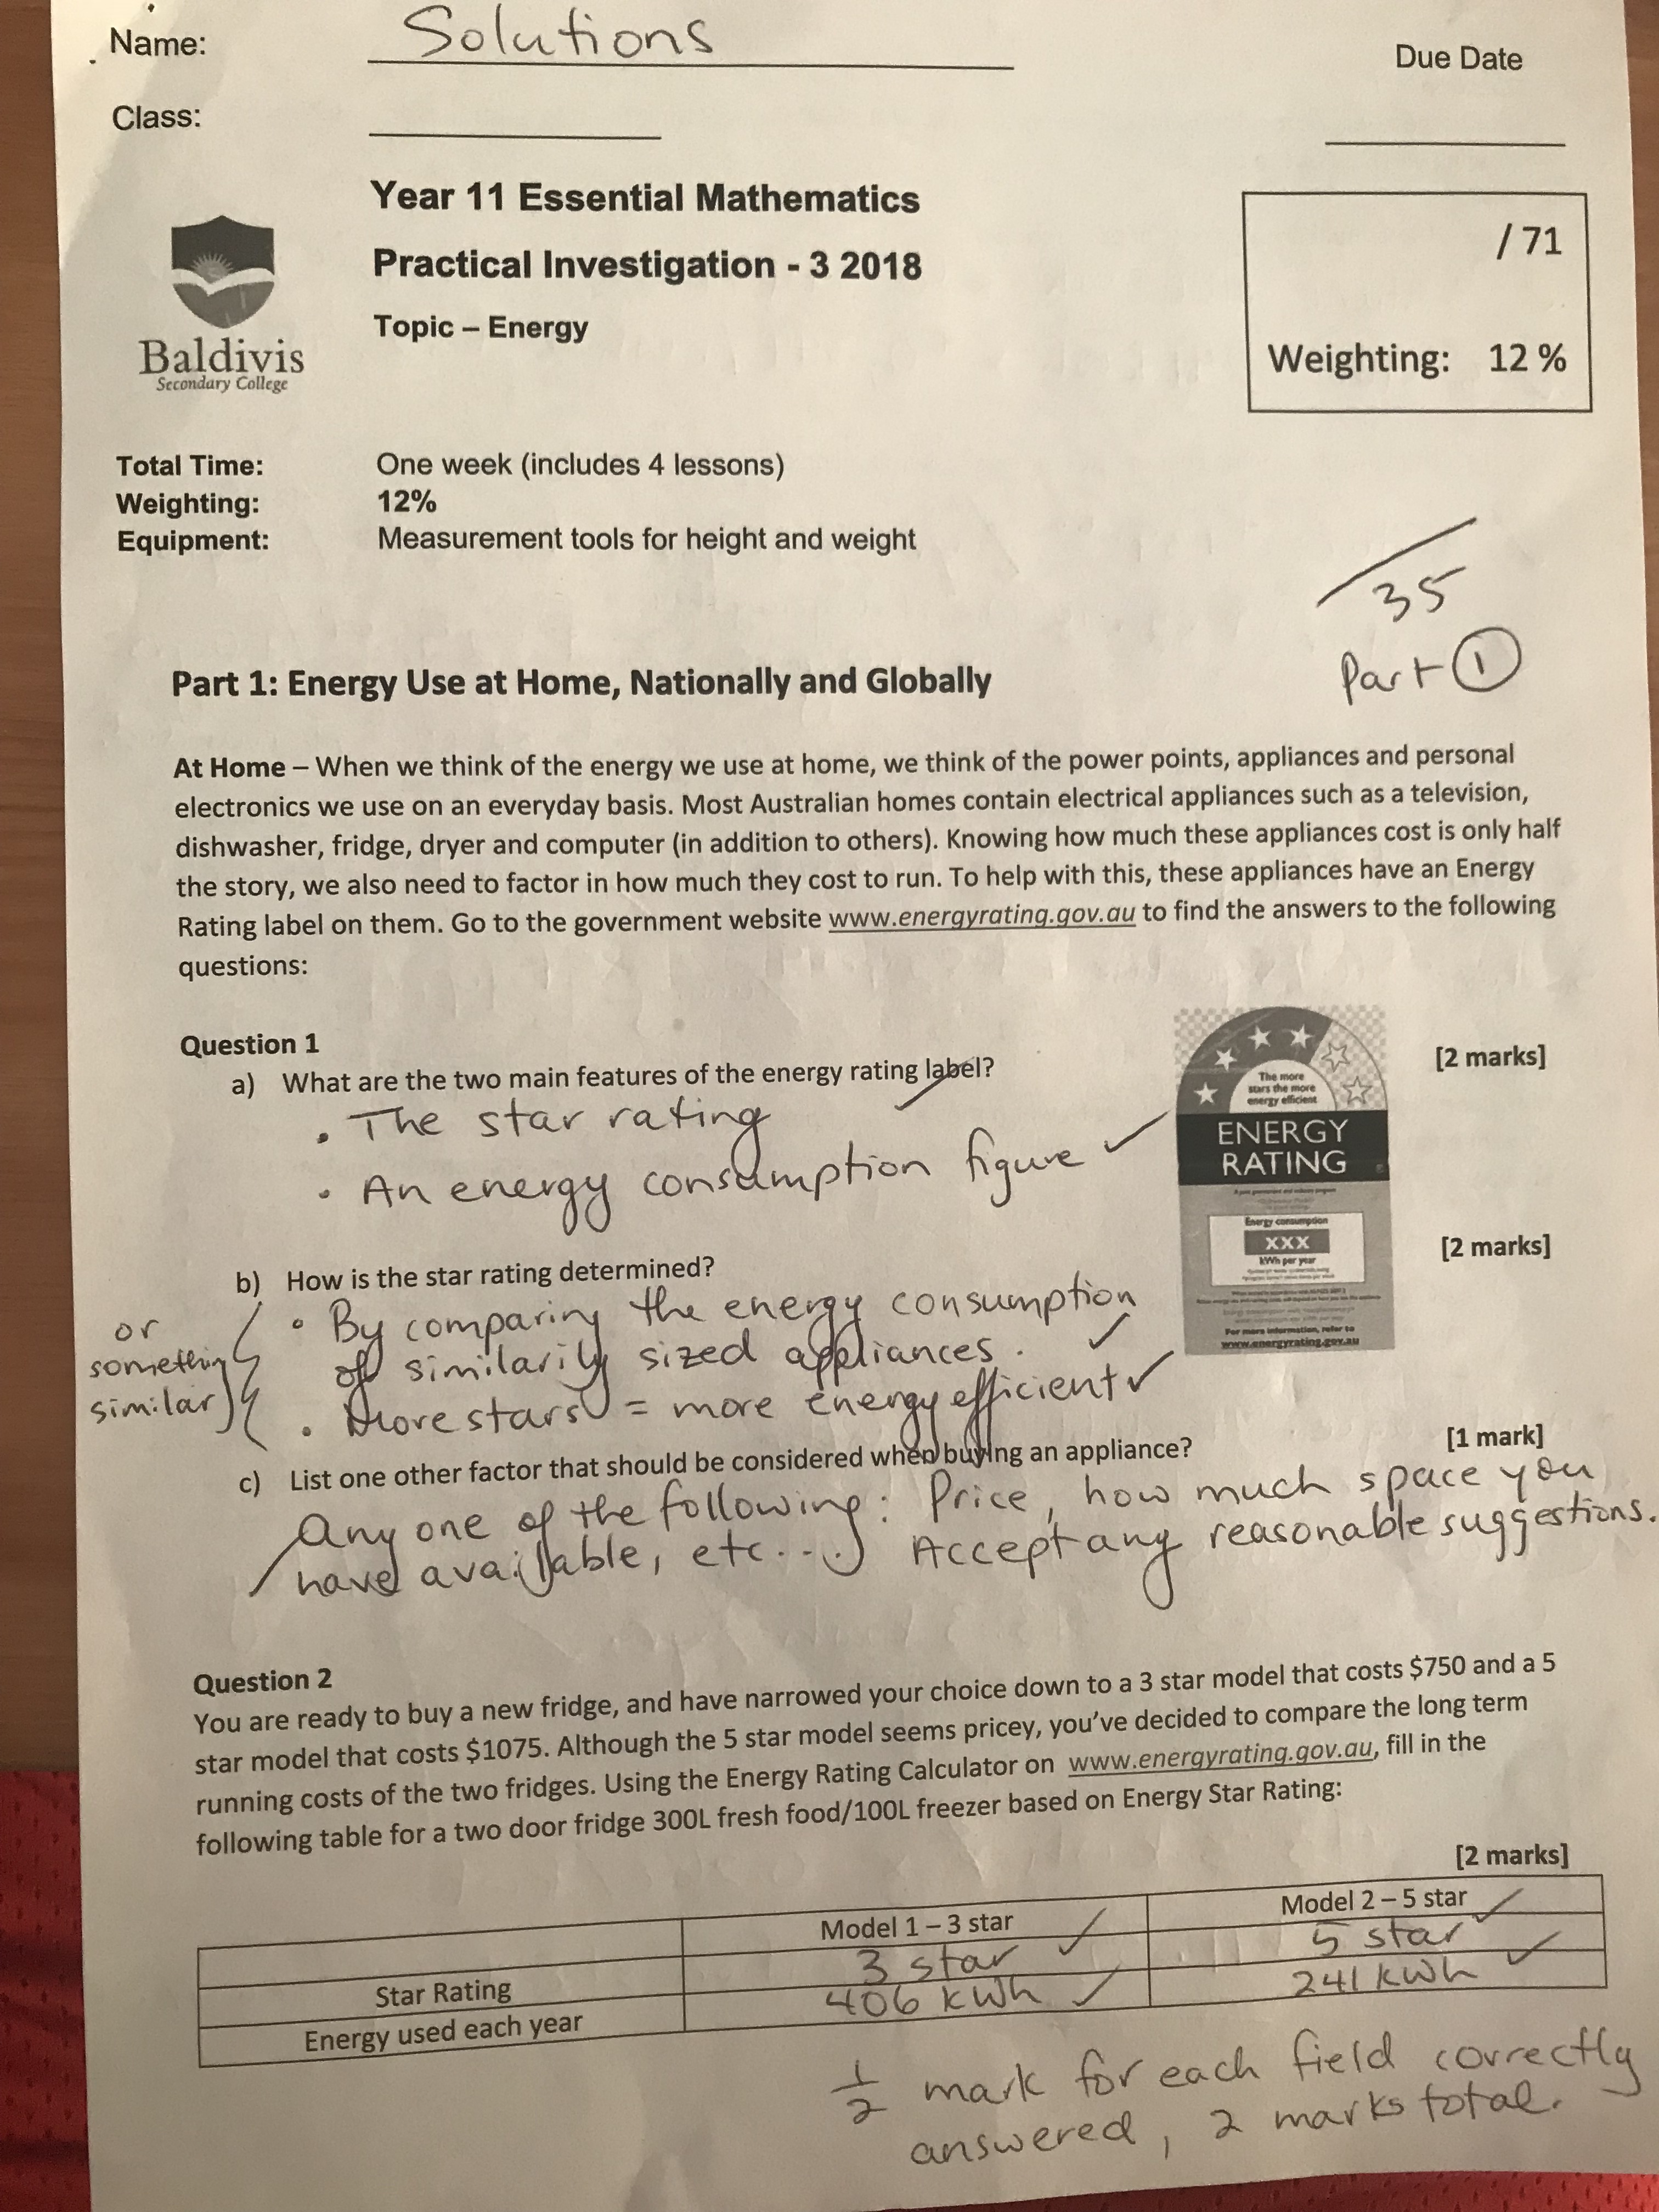 Name: Solutions
Due Date
Class:
Year 11 Essential Mathematics
Practical Investigation - 3 2018
Topic – Energy
/ 71
Weighting: 12 %
Baldivis
Secondary College
Total Time: One week (includes 4 lessons)
Weighting: 12%
Equipment: Measurement tools for height and weight
35
Part 1
Part 1: Energy Use at Home, Nationally and Globally
At Home – When we think of the energy we use at home, we think of the power points, appliances and personal
electronics we use on an everyday basis. Most Australian homes contain electrical appliances such as a television,
dishwasher, fridge, dryer and computer (in addition to others). Knowing how much these appliances cost is only half
the story, we also need to factor in how much they cost to run. To help with this, these appliances have an Energy
Rating label on them. Go to the government website www.energyrating.gov.au to find the answers to the following
questions:
Question 1
[2 marks]
a) What are the two main features of the energy rating label?
• The star rating ✓
• An energy consumption figure ✓
The more
stars the more
energy efficient
ENERGY
RATING
Energy consumption
XXX
kWh per year
For more information, refer to
www.energyrating.gov.au
[2 marks]
b) How is the star rating determined?
or
something
similar
• By comparing the energy consumption
of similarily sized appliances. ✓
• More stars = more energy efficient ✓
[1 mark]
c) List one other factor that should be considered when buying an appliance?
Any one of the following: Price, how much space you
have available, etc... Accept any reasonable suggestions.
Question 2
You are ready to buy a new fridge, and have narrowed your choice down to a 3 star model that costs $750 and a 5
star model that costs $1075. Although the 5 star model seems pricey, you've decided to compare the long term
running costs of the two fridges. Using the Energy Rating Calculator on www.energyrating.gov.au, fill in the
following table for a two door fridge 300L fresh food/100L freezer based on Energy Star Rating:
[2 marks]
Model 1 – 3 star Model 2 – 5 star
Star Rating 3 star ✓ 5 star ✓
Energy used each year 406 kWh ✓ 241 kWh ✓
1/2 mark for each field correctly
answered, 2 marks total.